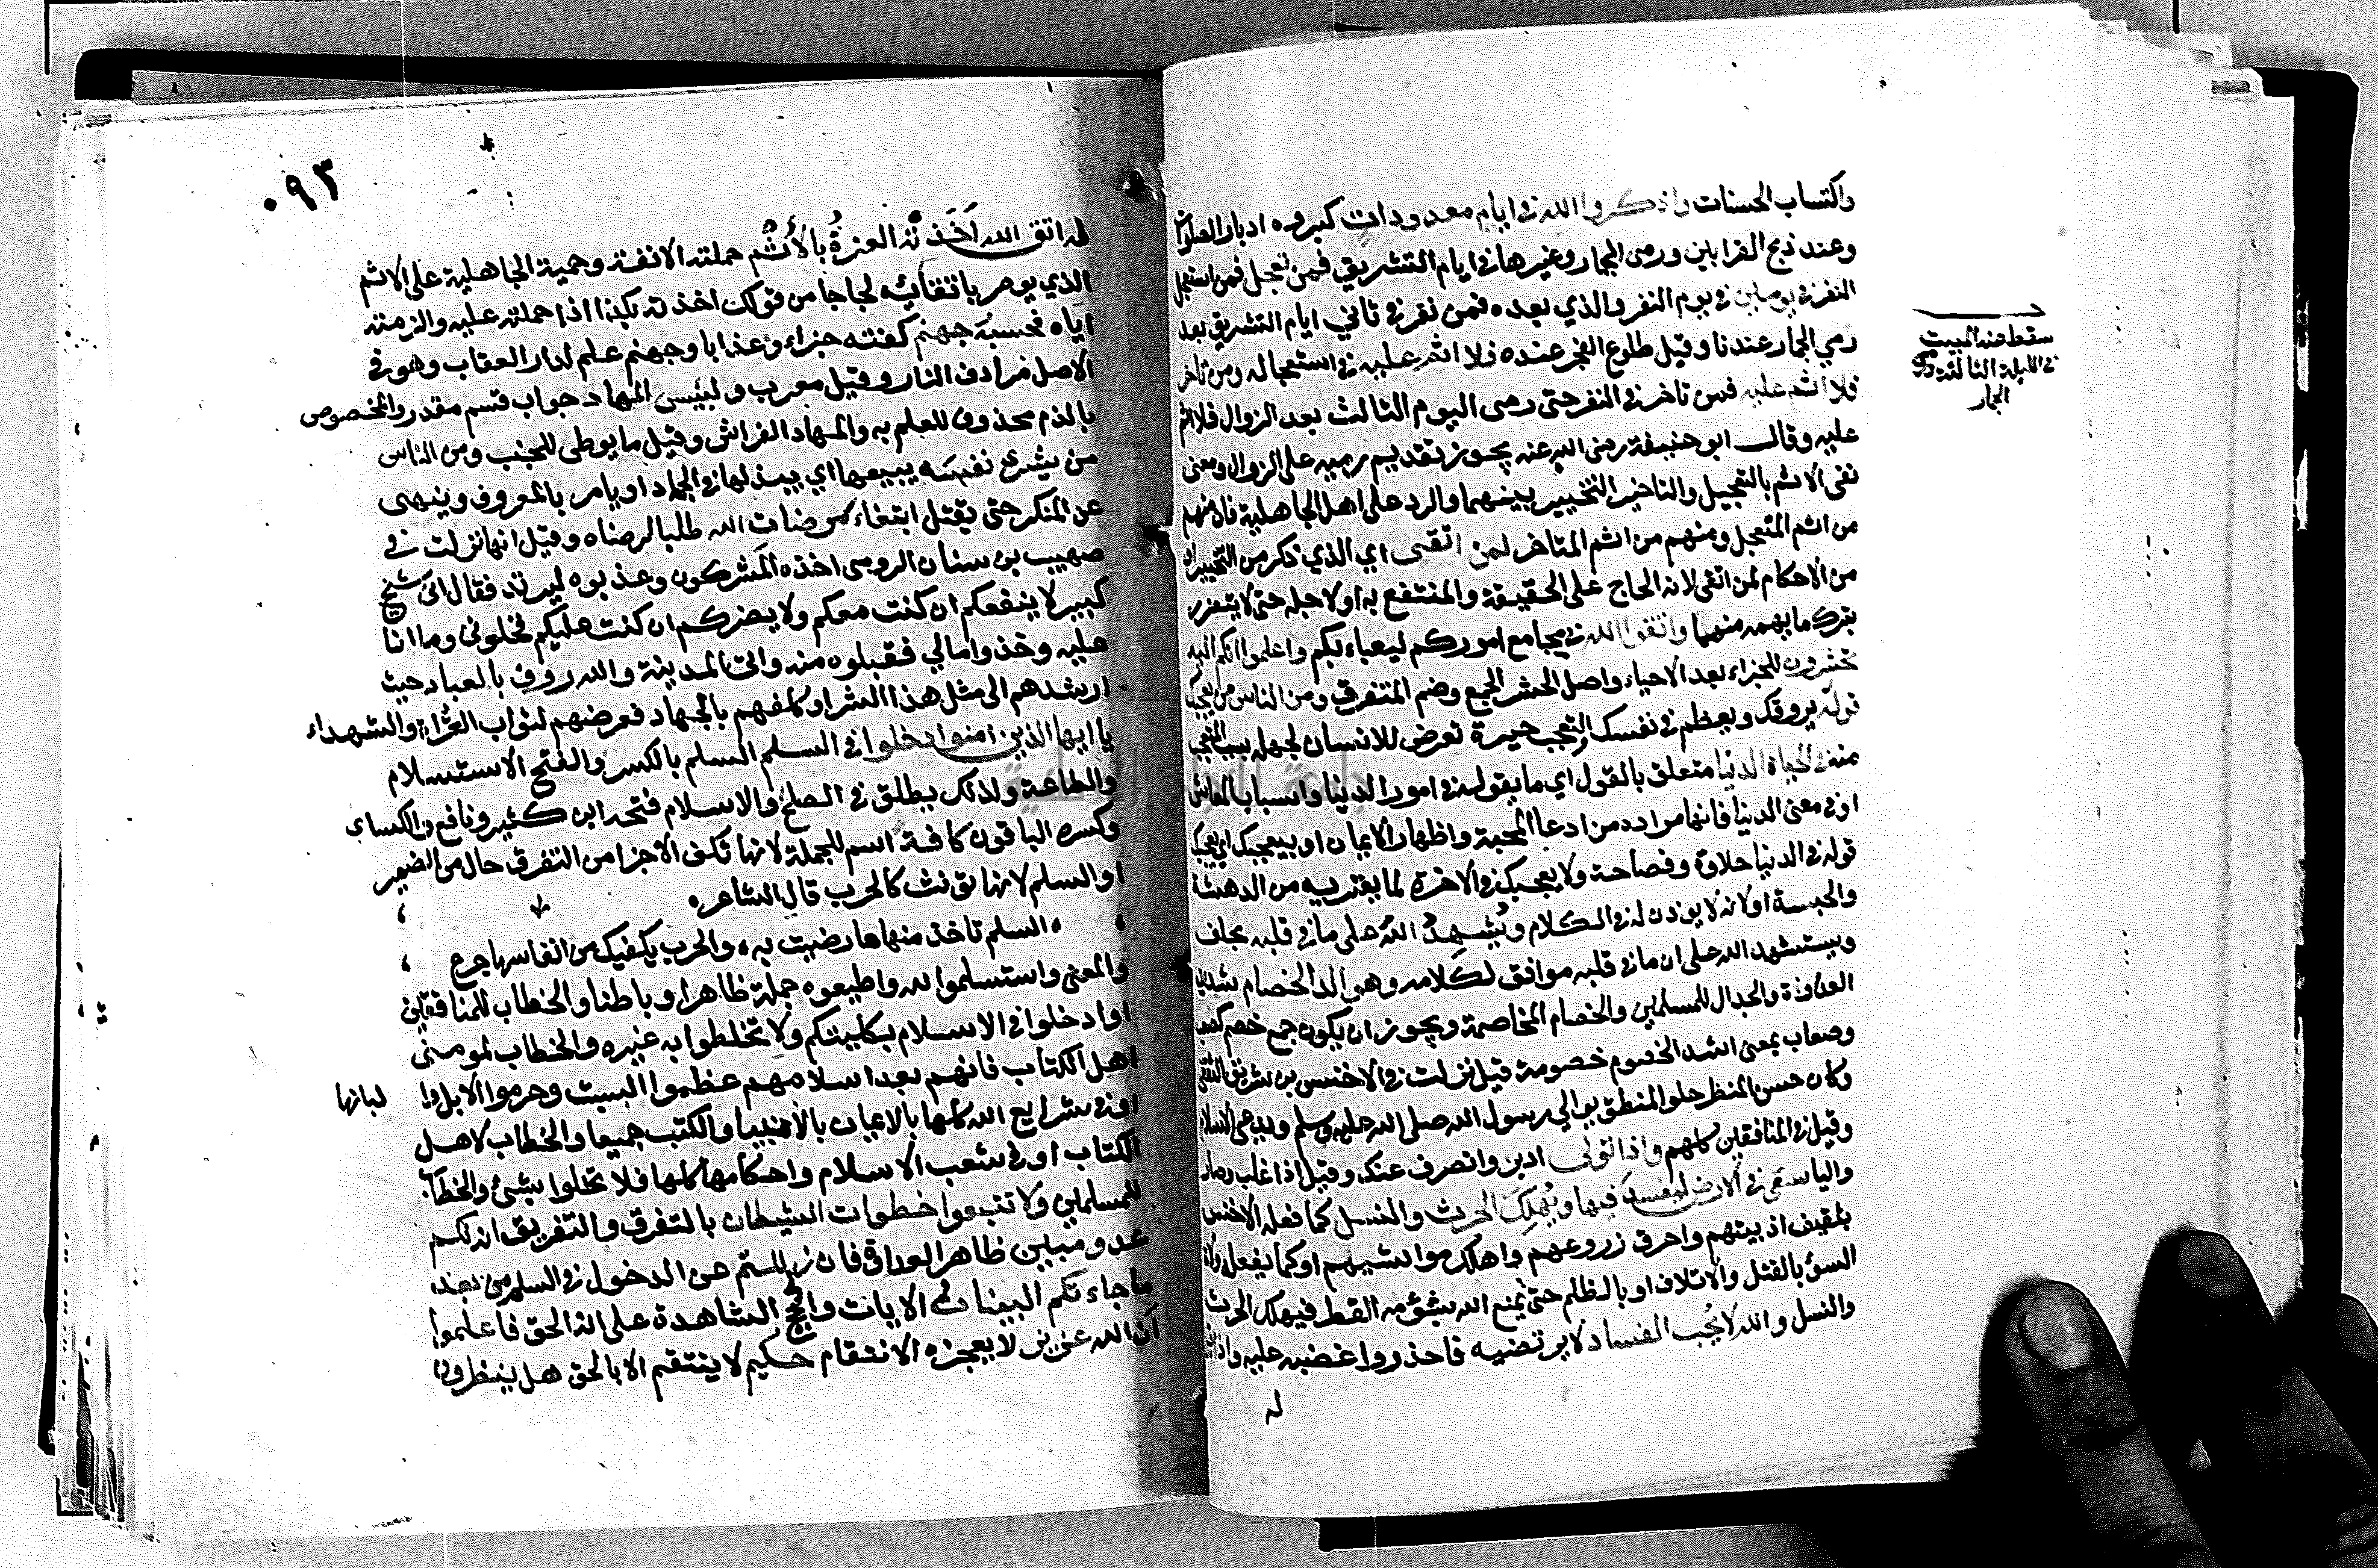 واكتساب الحسنات واذكروا الله في ايام معدودات كبروه ادبار الصلوات
وعند ذبح القرابين ورمى الجمار وغيرها في ايام التشريق فمن تعجل فمن استعجل
النفر في يومين في يوم النفر والذي بعده فمن نفر في ثاني ايام التشريق بعد
رمي الجمار عندنا وقيل طلوع الفجر عنده فلا اثم عليه في استعجاله ومن تاخر
فلا اثم عليه فمن تاخر في النفر حتى رمى اليوم الثالث بعد الزوال فلا اثم
عليه وقال ابو حنيفة رضى الله عنه يجوز تقديم رميه على الزوال ومعنى
نفى الاثم بالتعجيل والتاخير التخيير بينهما والرد على اهل الجاهلية فان منهم
من اثم المتعجل ومنهم من اثم المتاخر لمن اتقى اي الذي ذكر من التخيير او
من الاحكام لمن اتقى لانه الحاج على الحقيقة والمنتفع به او لاجله حتى لا يتضرر
بترك ما يهمه منهما واتقوا الله في مجامع اموركم ليعباء بكم واعلموا انكم اليه
تحشرون للجزاء بعد الاحياء واصل الحشر الجمع وضم المتفرق ومن الناس من يعجبك
قوله يروقك ويعظم في نفسك والتعجب حيرة تعرض للانسان لجهله بسبب المتعجب
منه في الحياة الدنيا متعلق بالقول اي ما يقوله في امور الدنيا واسباب المعاش
او في معنى الدنيا فانها مراده من ادعا المحبة واظهار الايمان او بيعجبك اي يعجبك
قوله في الدنيا حلاوة وفصاحة ولا يعجبك في الاخرة لما يعتريه من الدهشة
والحبسة او لانه لا يوذن له في الكلام ويشهد الله على ما في قلبه يحلف
ويستشهد الله على ان ما في قلبه موافق لكلامه وهو الد الخصام شديد
العداوة والجدال للمسلمين والخصام المخاصمة ويجوز ان يكون جمع خصم كصعب
وصعاب بمعنى اشد الخصوم خصومة قيل نزلت في الاخنس بن شريق الثقفى
وكان حسن المنظر حلو المنطق يوالي رسول الله صلى الله عليه وسلم ويدعى الاسلام
وقيل في المنافقين كلهم واذا تولى ادبر وانصرف عنك وقيل اذا غلب وصار
واليا سعى في الارض ليفسد فيها ويهلك الحرث والنسل كما فعله الاخنس
بثقيف اذ بيتهم واحرق زروعهم واهلك مواشيهم او كما يفعله ولاة
السؤ بالقتل والاتلاف او بالظلم حتى يمنع الله بشؤمه القطر فيهلك الحرث
والنسل والله لا يحب الفساد لا يرتضيه فاحذروا غضبه عليه واذا قيل
له
سقط عنه المبيت
في الليلة الثالثة ورمى
الجمار
٠٩٣
له اتق الله اخذته العزة بالاثم حملته الانفة وحمية الجاهلية على الاثم
الذي يومر باتقائه لجاجا من قولك اخذته بكذا اذا حملته عليه والزمته
اياه فحسبه جهنم كفته جزاء وعذابا وجهنم علم لدار العقاب وهو في
الاصل مرادف النار وقيل معرب ولبئس المهاد جواب قسم مقدر والمخصوص
بالذم محذوف للعلم به والمهاد الفراش وقيل ما يوطى للجنب ومن الناس
من يشرى نفسه يبيعها اي يبذلها في الجهاد او يامر بالمعروف وينهى
عن المنكر حتى يقتل ابتغاء مرضات الله طلبا لرضاه وقيل انها نزلت في
صهيب بن سنان الرومى اخذه المشركون وعذبوه ليرتد فقال انى شيخ
كبير لا ينفعكم ان كنت معكم ولا يضركم ان كنت عليكم فخلونى وما انا
عليه وخذوا مالي فقبلوه منه واتى المدينة والله روف بالعباد حيث
ارشدهم الى مثل هذا الشراء وكلفهم بالجهاد فعرضهم لثواب الغزاة والشهداء
يا ايها الذين امنوا ادخلوا في السلم السلم بالكسر والفتح الاستسلام
والطاعة ولذلك يطلق في الصلح والاسلام فتحه ابن كثير ونافع والكساى
وكسره الباقون كافة اسم للجملة لانها تكف الاجزا من التفرق حال من الضمير
او السلم لانها تؤنث كالحرب قال الشاعر
السلم تاخذ منها ما رضيت به والحرب يكفيك من انفاسها جرع
والمعنى واستسلموا لله واطيعوه جملة ظاهرا وباطنا والخطاب للمنافقين
او ادخلوا في الاسلام بكليتكم ولا تخلطوا به غيره والخطاب لمومنى
اهل الكتاب فانهم بعد اسلامهم عظموا السبت وحرموا الابل والبانها
او في شرايع الله كلها بالايمان بالانبيا والكتب جميعا والخطاب لاهل
الكتاب او في شعب الاسلام واحكامها كلها فلا تخلوا بشئ والخطاب
للمسلمين ولا تتبعوا خطوات الشيطان بالتفرق والتفريق انه لكم
عدو مبين ظاهر العداوة فان زللتم عن الدخول في السلم من بعد
ما جاءتكم البينات الايات والحجج الشاهدة على انه الحق فاعلموا
ان الله عزيز لا يعجزه الانتقام حكيم لا ينتقم الا بالحق هل ينظرون